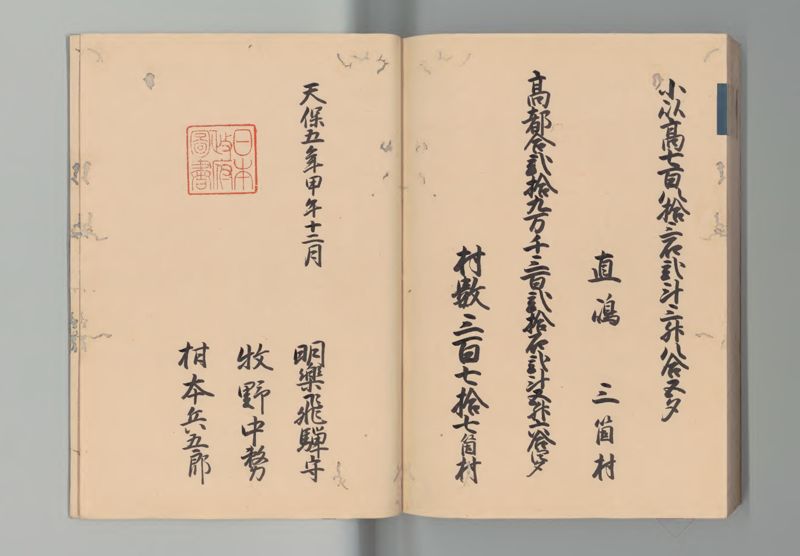 小以高七百八拾三石弐斗三升八合五夕
直嶋　三箇村
高都合弐拾九万千三百弐拾石弐斗五升六合
村数三百七拾七箇村
天保五年甲午十二月
日本
政府
図書
明樂飛騨守
牧野中務
柑本兵五郎